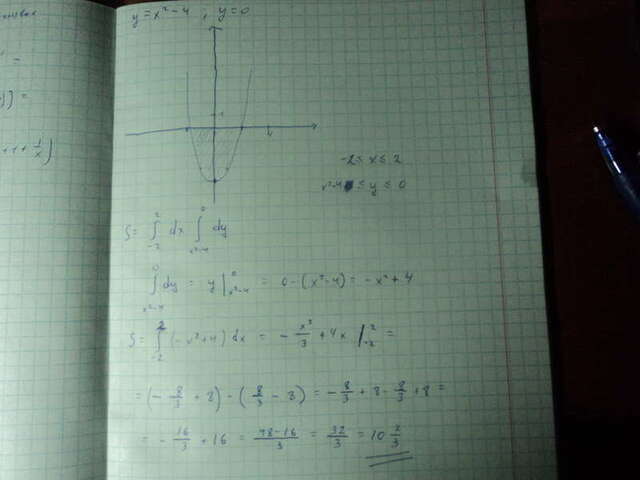 y = x² - 4 , y = 0
-2 ≤ x ≤ 2
x² - 4 ≤ y ≤ 0
S = ∫_{-2}^{2} dx ∫_{x²-4}^{0} dy
∫_{x²-4}^{0} dy = y |_{x²-4}^{0} = 0 - (x² - 4) = -x² + 4
S = ∫_{-2}^{2} (-x² + 4) dx = - x³/3 + 4x |_{-2}^{2} =
= (- 8/3 + 8) - (8/3 - 8) = - 8/3 + 8 - 8/3 + 8 =
= - 16/3 + 16 = (48 - 16)/3 = 32/3 = 10 2/3